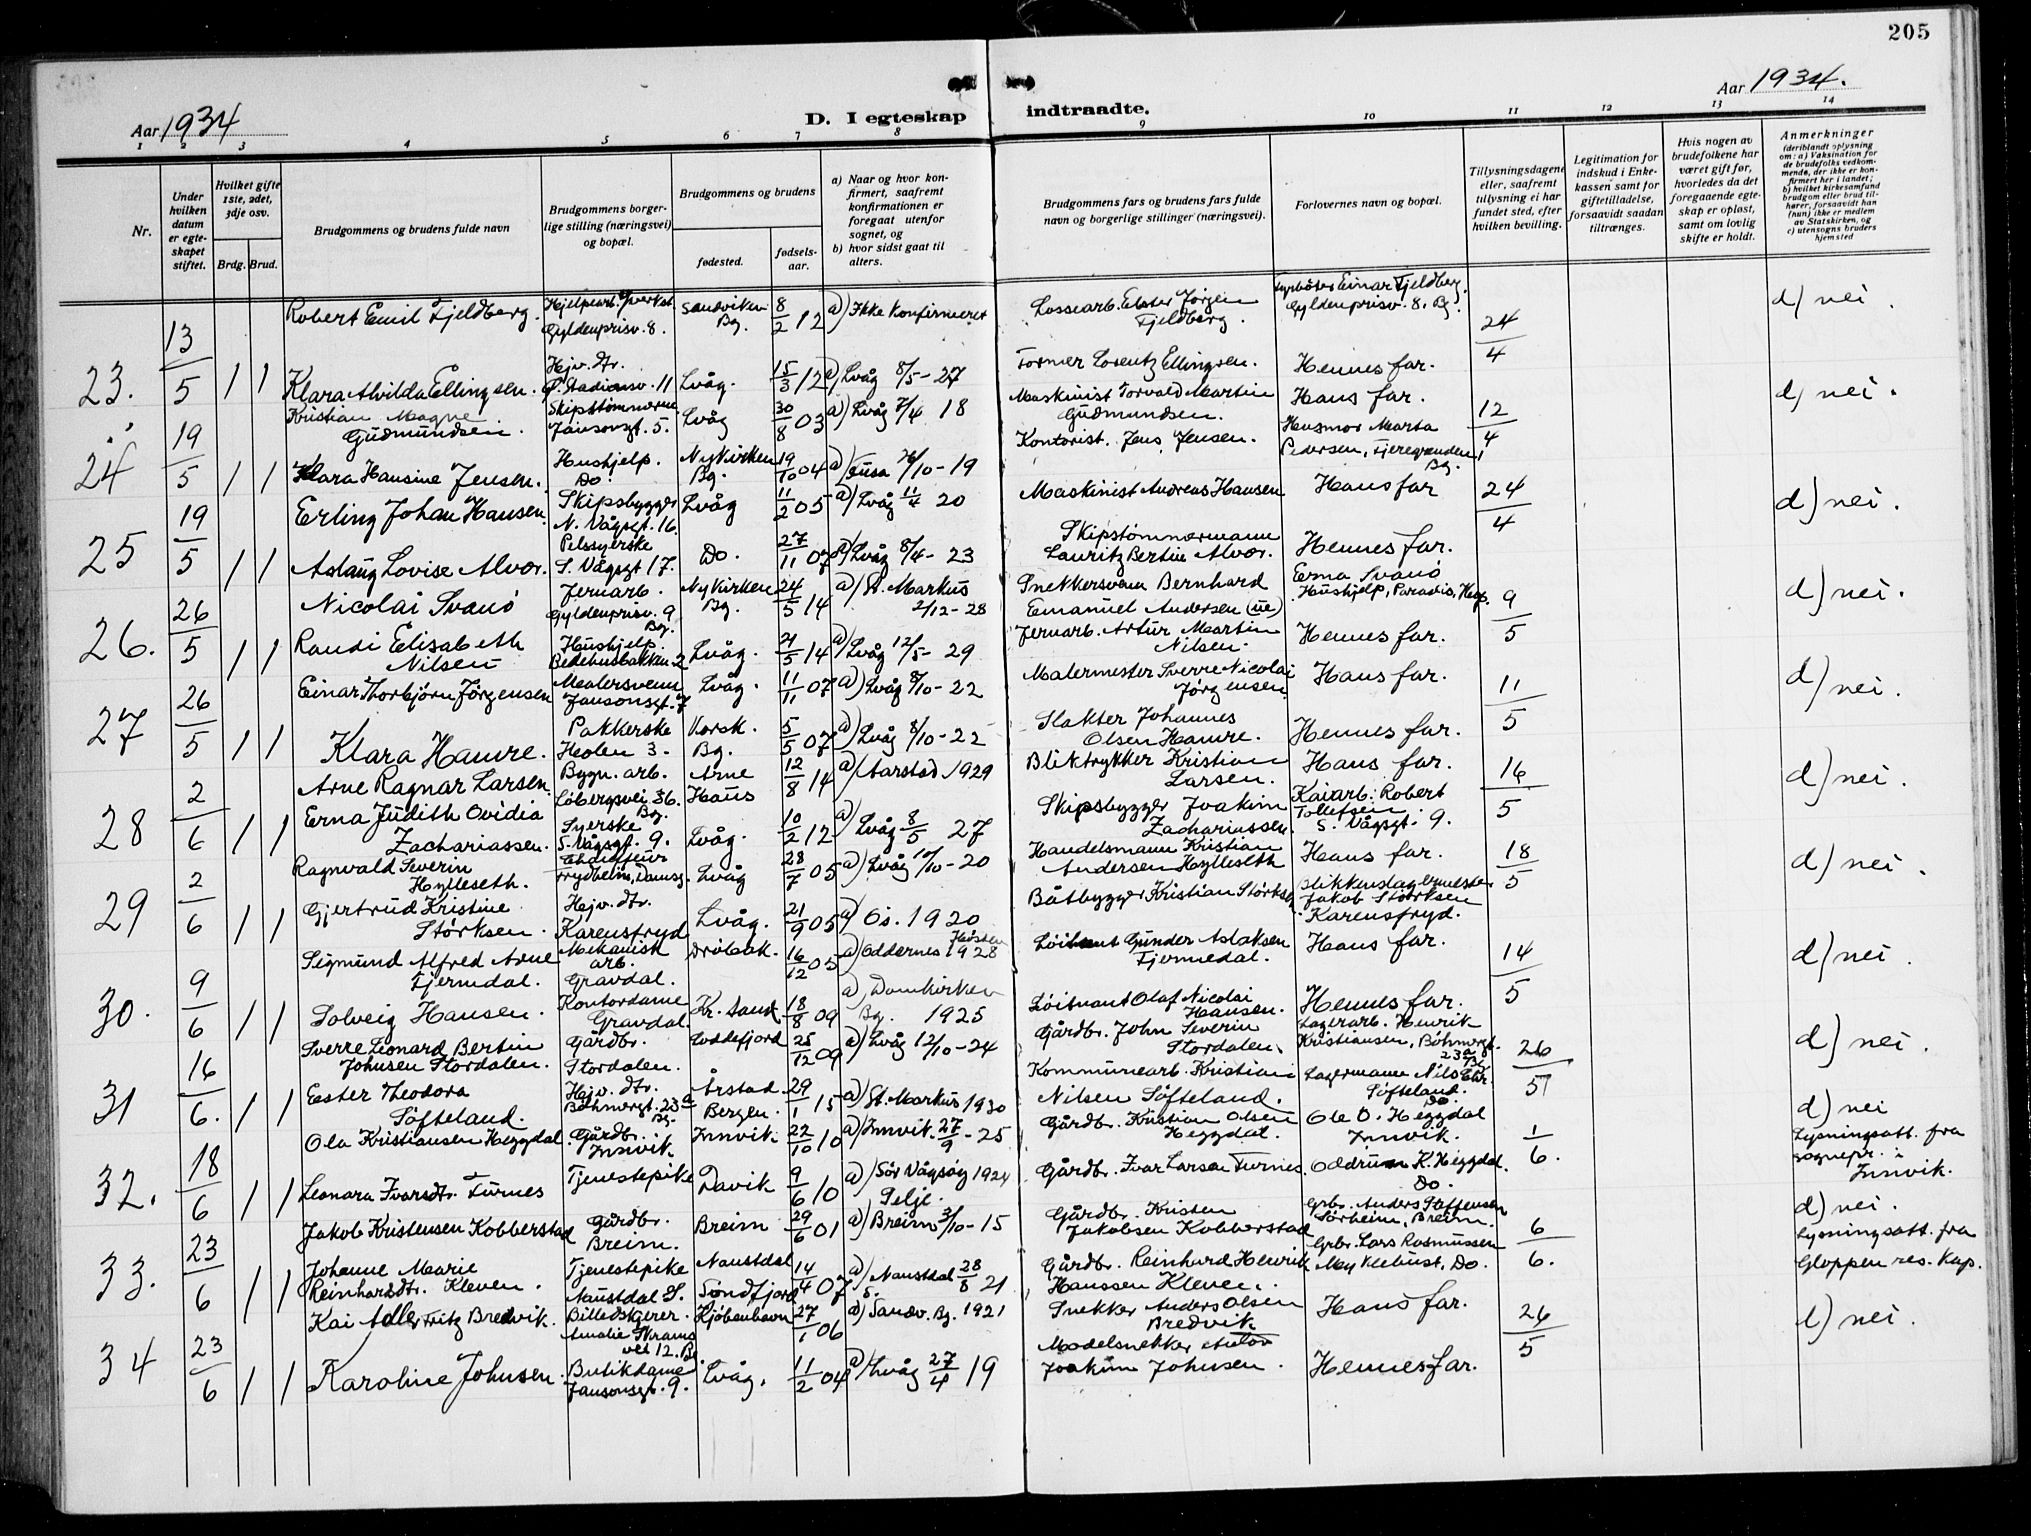 205
Aar 1934
D. I egteskap indtraadte.
Aar 1934.
1 2 3 4 5 6 7 8 9 10 11 12 13 14
Nr.
Under hvilken datum er egteskapet stiftet.
Hvilket gifte 1ste, 2det, 3dje osv.
Brdg. Brud.
Brudgommens og brudens fulde navn
Brudgommens borgerlige stilling (næringsvei) og bopæl.
Brudgommens og brudens
fødested.
fødselsaar.
a) Naar og hvor konfirmert, saafremt konfirmationen er foregaat utenfor sognet, og
b) hvor sidst gaat til alters.
Brudgommens fars og brudens fars fulde navn og borgerlige stillinger (næringsvei).
Forlovernes navn og bopæl.
Tillysningsdagene eller, saafremt tillysning ei har fundet sted, efter hvilken bevilling.
Legitimation for indskud i Enkekassen samt for giftetilladelse, forsaavidt saadan tiltrænges.
Hvis nogen av brudefolkene har været gift før, hvorledes da det foregaaende egteskap er opløst, samt om lovlig skifte er holdt.
Anmerkninger (deriblandt oplysning om: a) Vaksination for de brudefolks vedkommende, der ikke er konfirmert her i landet; b) hvilket kirkesamfund brudgom eller brud tilhører, forsaavidt han (hun) ikke er medlem av Statskirken, og c) utensogns bruders hjemsted
23. 13/5 1 1
Robert Emil Fjeldberg. Gyldenprisv. 8. Sandviken Bg. 8/2 12 a) Ikke Konfirmeret Lossearb. Fjeldberg. Einar Fjeldberg. Gyldenprisv. 8. Bg. 24/4 d) nei.
Klara Alvilda Ellingsen. Hejv. dtr. 11 Lvåg. 15/3 12 a) Lvåg 8/5 - 27 Former Lorentz Ellingsen. Hennes far.
24 19/5 1 1
Kristian Magne Gudmundsen. Skipstømmerm. Jansonsgt. 5. Lvåg 30/8 03 a) Lvåg 7/4 18 Maskinist Torvald Martin Gudmundsen. Hans far. 12/4 d) nei.
Klara Hansine Jensen. Hushjelp. Do. Nykirken Bg. 19/10 04 a) Fusa 26/10 - 19 Kontorist. Jens Jensen. Husmor Marta Pedersen, Bg.
25 19/5 1 1
Erling Johan Hansen. Skipsbygger N. Vågsgt. 16. Lvåg 11/2 05 a) Lvåg 11/4 20 Maskinist Andreas Hansen Hans far 24/4 d) nei.
Aslaug Lovise Alvær. Pelssyerske S. Vågsgt 17. Do. 27/11 07 a) Lvåg 8/4 - 23 Skipstømmermann Lauritz Bertin Alvær. Hennes far.
26. 26/5 1 1
Nicolai Svanø Jernarb. Gyldenprisv. 9 Bg. Nykirken Bg. 24/5 14 a) St. Markus 2/12 - 28 Snekkersvenn Bernhard Emanuel Andersen (ue) Erna Svanø Hushjelp, Paradis, Hop. 9/5 d) nei.
Randi Elisabeth Nilsen Hushjelp. Bedehusbakken 2 Lvåg. 21/5 14 a) Lvåg 12/5 - 29 Jernarb. Artur Martin Nilsen. Hennes far.
27 26/5 1 1
Einar Thorbjørn Jørgensen Malersvenn Jansonsgt. 7 Lvåg. 11/11 07 a) Lvåg 8/10 - 22 Malermester Sverre Nicolai Jørgensen. Hans far. 11/5 d) nei.
Klara Hamre. Pakkerske Holen 3. Korsk. Bg. 5/5 07 a) Lvåg 8/10 - 22 Slakter Johannes Olsen Hamre. Hennes far.
28 2/6 1 1
Arne Ragnar Larsen. Bygn. arb. Løbergsvei 36. Bg. Arne Haus 12/8 14 a) Aarstad 1929 Bliktrykker Kristian Larsen. Hans far. 16/5 d) nei.
Erna Judith Ovidia Zachariassen. Syerske S. Vågsgt. 9. Lvåg. 10/2 12 a) Lvåg 8/5 27 Skipsbygger Joakim Zachariassen. Kaiarb. Robert Tollefsen S. Vågsgt. 9.
29 2/6 1 1
Ragnvald Severin Hylleseth. Chauffeur Frydheim, Damsg. Lvåg 28/7 05 a) Lvåg 10/10 - 20 Handelsmann Kristian Andersen Hylleseth Hans far. 18/5 d) nei.
Gjertrud Kristine Størksen. Hejv. dtr. Karensfryd Lvåg. 21/9 05 a) Os. 1920 Båtbygger Kristian Størksen Blikkenslagermester Jakob Størksen Karensfryd.
30. 9/6 1 1
Sigmund Alfred Arne Fjermedal. Mekanisk arb. Gravdal. Drøbak. 16/12 05 a) Oddernes Høsten 1928 Løitnant Gunder Aslaksen Fjermedal. Hans far. 14/5 d) nei.
Solveig Hansen. Kontordame Gravdal. Kr. sand 18/8 09 a) Domkirken Bg. 1925 Løitnant Olaf Nicolai Hansen. Hennes far.
31 16/6. 1 1
Sverre Leonard Bertin Johnsen Stordalen. Gårdbr. Stordalen. Loddefjord 25/12 09 a) Lvåg 12/10 - 24 Gårdbr. John Severin Stordalen. Lagerarb. Henrik Kristiansen, Bøhmergt. 23a Bg. 26/5 d) nei.
Ester Theodora Søfteland. Hejv. dtr. Bøhmergt. 23a Bg. Årstad Bergen. 29/1 15 a) St. Markus 1930 Kommunearb. Kristian Nilsen Søfteland. Lagermann Nils Chr. Søfteland. Do.
32. 18/6 1 1
Ola Kristiansen Heggdal. Gårdbr. Innvik Innvik 22/10 10 a) Innvik. 27/9 - 25 Gårdbr. Kristian Olsen Heggdal. Ole O. Heggdal Innvik. 1/6. d) nei Lysningsatt. fra sognepr. i Innvik.
Leonora Ivarsdtr. Furnes Tjenestepike Davik 9/6 10 a) Sör Vågsøy 1924 Selje. Gårdbr. Ivar Larsen Furnes. Oddrun K. Heggdal. Do.
33. 23/6 1 1
Jakob Kristensen Kobberstad Gårdbr. Breim. Breim 29/6 01 a) Breim 3/10 - 15 Gårdbr. Kristen Jakobsen Kobberstad Grbr. Anders Steffensen Sørheim, Breim. 6/6. d) nei. Lysningsatt. fra Gloppen res. Kap.
Johanne Marie Reinhardsdtr. Kleven. Tjenestepike Naustdal S. Naustdal Sondfjord 14/4 07 a) Naustdal S. 28/8 21 Gårdbr. Reinhard Henrik Hanssen Kleven. Grbr. Lars Rasmussen Myklebust, Do.
34 23/6 1 1
Kai Adler Fritz Bredvik. Billedskjerer. Amalie Skrams vei 12. Bg. Kjøbenhavn 27/1 06 a) Sandv. Bg. 1921 Snekker Anders Olsen Bredvik Hans far. 26/5 d) nei.
Karoline Johnsen. Butikdame Jansonsgt. 9. Lvåg. 11/2 04 a) Lvåg 27/4 19 Modelsnekker Anton Joakim Johnsen. Hennes far.